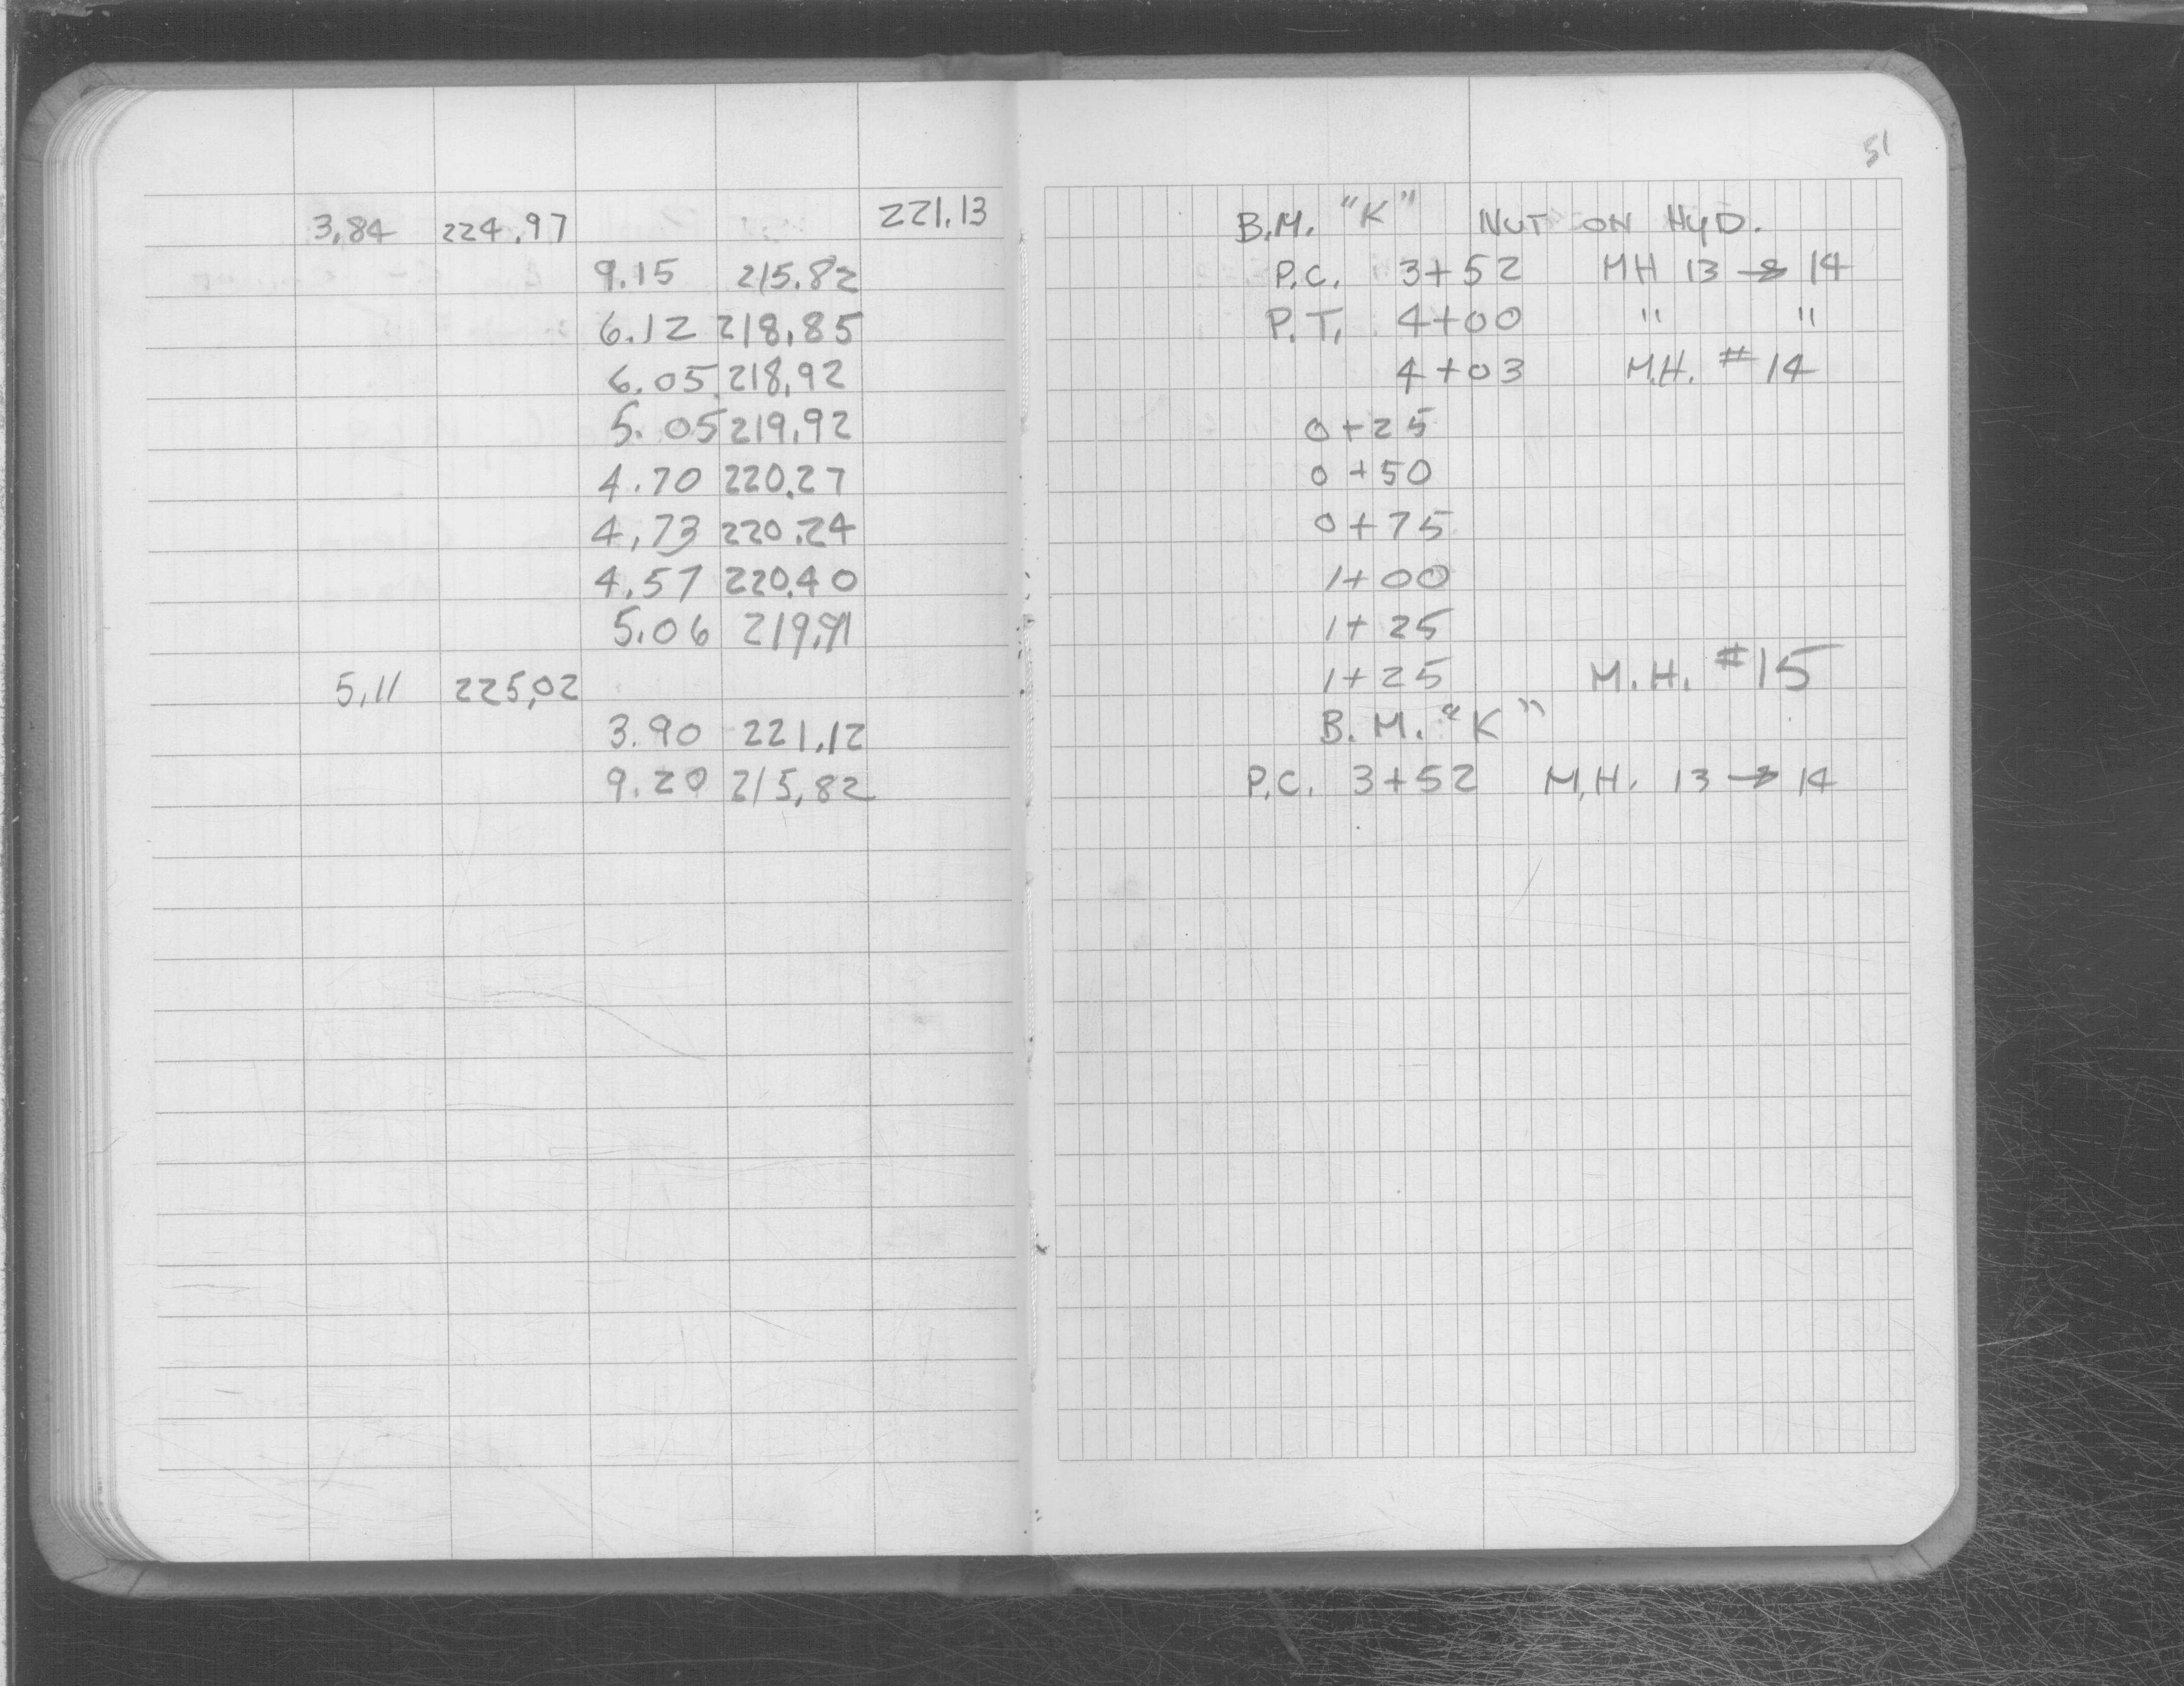 51
3.84 224.97 221.13 B.M. "K" NUT ON HYD.
9.15 215.82 P.C. 3+52 MH 13 → 14
6.12 218.85 P.T. 4+00 " "
6.05 218.92 4+03 M.H. #14
5.05 219.92 0+25
4.70 220.27 0+50
4.73 220.24 0+75
4.57 220.40 1+00
5.06 219.91 1+25
5.11 225.02 1+25 M.H. #15
3.90 221.12 B.M. "K"
9.20 215.82 P.C. 3+52 M.H. 13 → 14